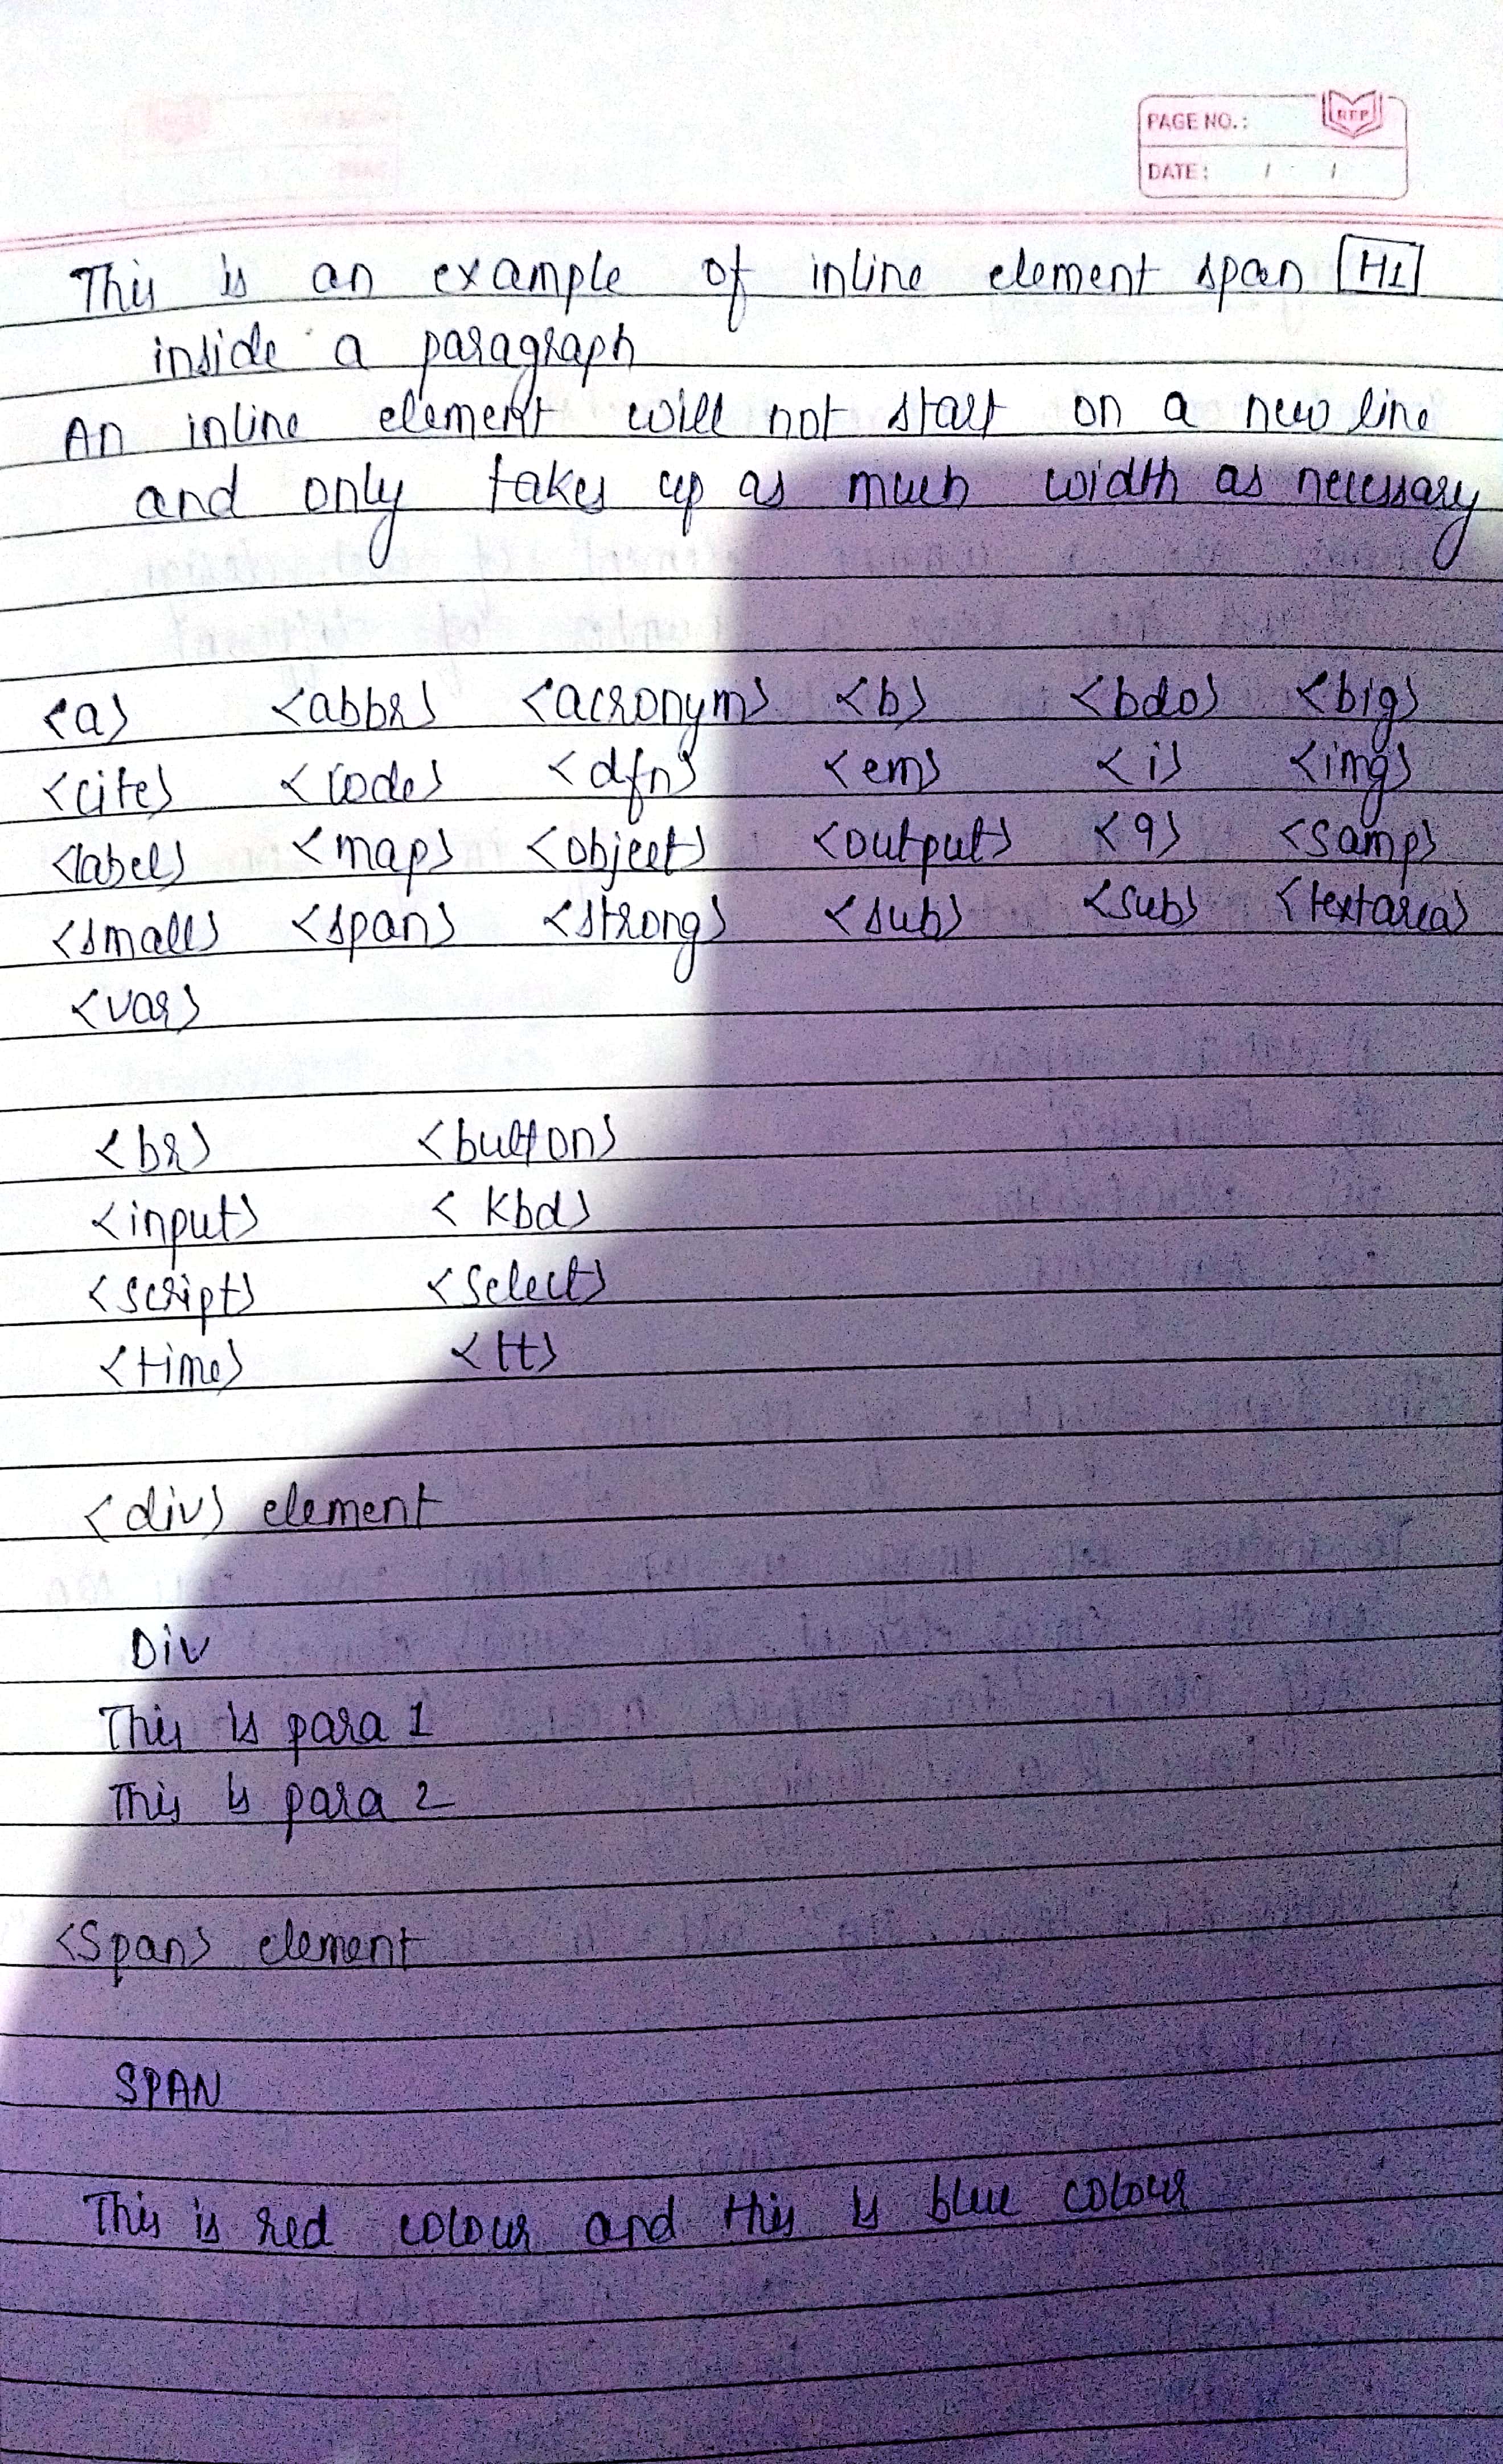 PAGE NO.:
RFP
DATE: / /
This is an example of inline element span H1
inside a paragraph
An inline element will not start on a new line
and only takes up as much width as necessary
<a> <abbr> <acronym> <b> <bdo> <big>
<cite> <code> <dfn> <em> <i> <img>
<label> <map> <object> <output> <q> <samp>
<small> <span> <strong> <sub> <sub> <textarea>
<var>
<br> <button>
<input> <kbd>
<script> <select>
<time> <tt>
<div> element
Div
This is para 1
This is para 2
<Span> element
SPAN
This is red colour and this is blue colour